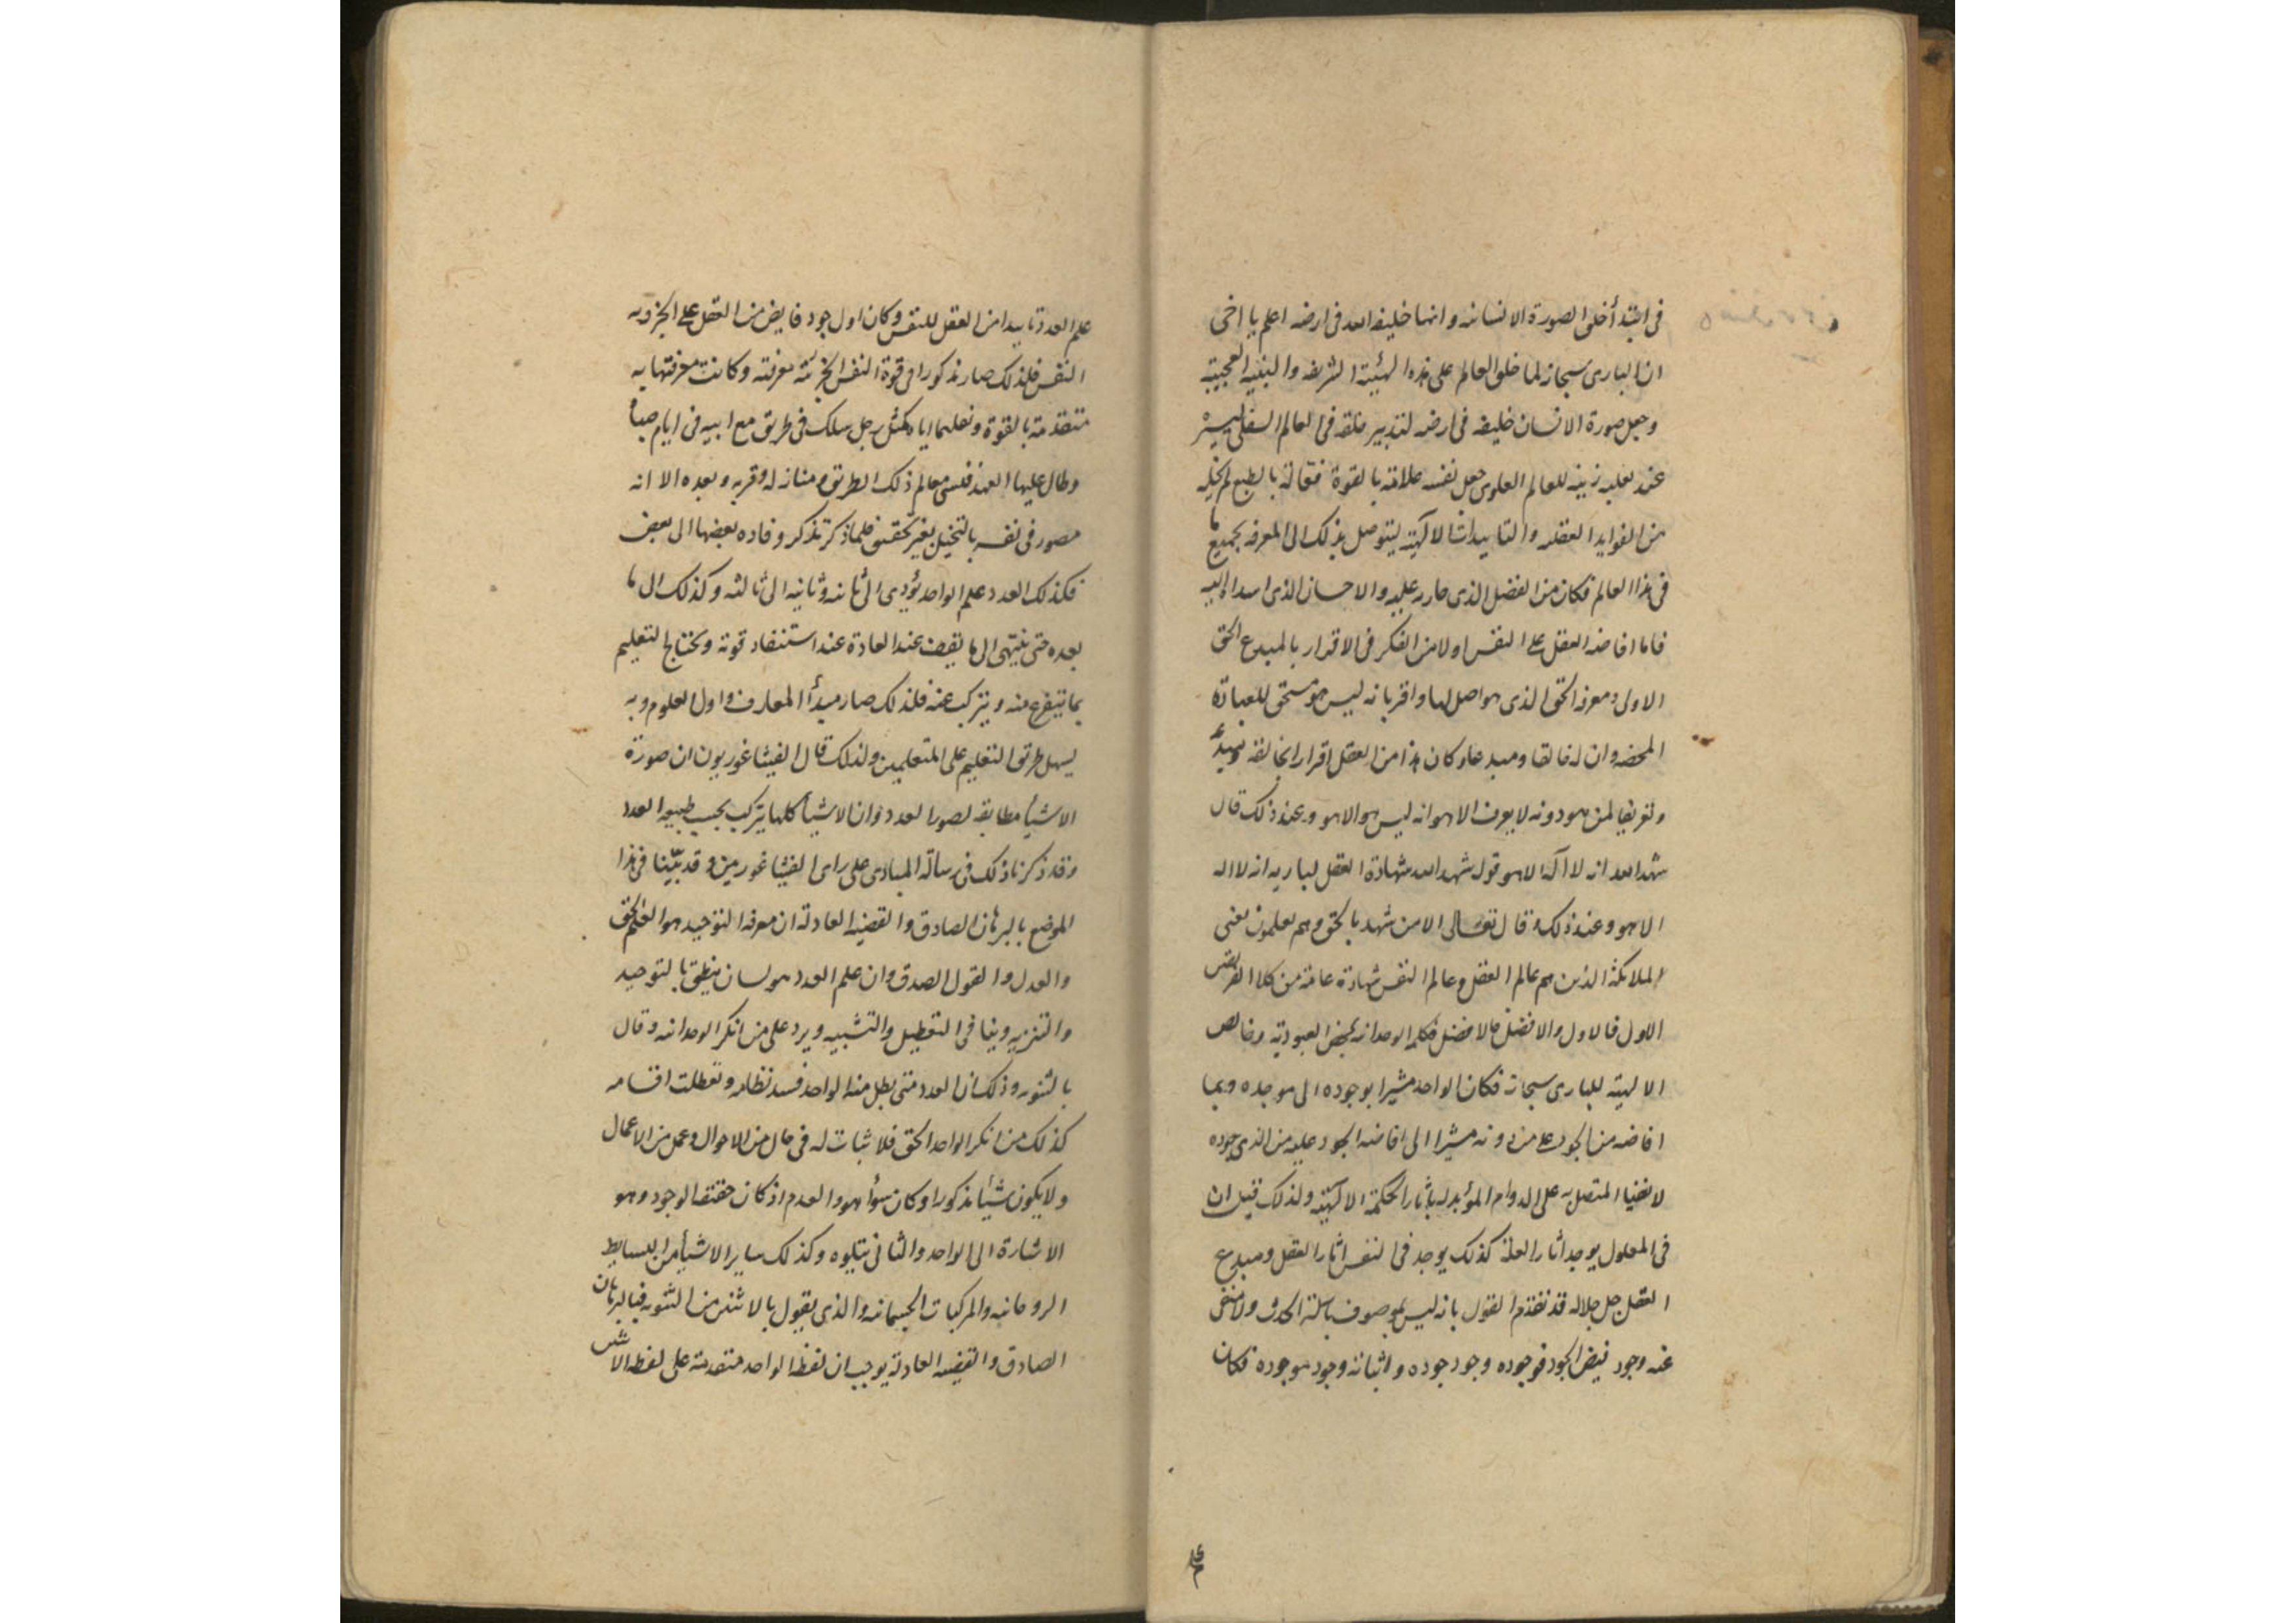 فى ابتدأ خلق الصورة الانسانيه وانها خليفه الله فى ارضه اعلم يا اخى
ان البارى سبحانه لما خلق العالم على هذه الهيئية الشريفه والبنيه العجيبة
وجعل صورة الانسان خليفه فى ارضه لتدبير خلقه فى العالم السفلى ليسيره
عند نقله زينه للعالم العلوى جعل نفسه علامة بالقوة فعالة بالطبع لم يخله
من الفوايد العقليه والتاييدات الالهية ليتوصل بذلك الى المعرفه بجميع ما
فى هذا العالم فكان من الفضل الذى عليه والاحسان الذى اسداه اليه
فاما افاضه العقل على النفس اولا من الفكر فى الاقرار بالمبدع الحق
الاول ومعرفه الحق الذى هو اصل لها واقر بانه ليس هو مستحق للعبادة
المحضه وان له خالقا ومبدعا وكان هذا من العقل اقرارا بخالقه ومبديه
وتعريفا لمن هو دونه لا يعرف الا هو انه ليس هو الا هو وعند ذلك قال
شهد الله انه لا اله الا هو قول شهد الله شهادة العقل لباريه انه لا اله
الا هو وعند ذلك وقال تعالى الا من شهد بالحق وهم يعلمون يعنى
الملائكة الذين هم عالم العقل وعالم النفس شهادة عامة من كلا
الاول فالاول والافضل فالافضل فكلمه الوحدانيه بمحض العبودية وخالص
الالهية للبارى سبحانه فكان الواحد مشيرا بوجوده الى موجده وبما
افاضه من الجود على من دونه مشيرا الى افاضه الجود عليه من الذى جوده
المتصل به على الدوام المؤبد له باثار الحكمة الالهية ولذلك قيل ان
فى المعلول يوجد اثار العلة كذلك يوجد فى النفس اثار العقل ومبدع
العقل جل جلاله قد تقدم القول بانه ليس بموصوف باسلة الحدث ولا منفى
عنه وجود فيض الجود فوجوده وجود جوده واثباته وجود موجوده فكان
علم
علم العدد تاييدا من العقل للنفس وكان اول جود فايض من العقل على الجزويه
النفس فلذلك صار مذكورا فى قوة النفس الجزئية معرفته وكانت معرفتها به
متقدمة بالقوة وتعليمها اياه كمثل رجل سلك فى طريق مع ابيه فى ايام صباه
وطال عليها العهد فنسى معالم ذلك الطريق ومنازله وقربه وبعده الا انه
مصور فى نفسه بالتخيل بغير تحقيق فلما ذكر تذكر وقاده بعضها الى بعض
فكذلك العدد علم الواحد يؤدى الى ثانيه وثانيه الى ثالثه وكذلك الى ما
بعده حتى ينتهى الى ما يقف عند العادة عند استنفاد قوته ويحتاج التعليم
بما يتفرع منه ويتركب عنه فلذلك صار مبدأ المعارف واول العلوم وبه
يسهل طريق التعليم على المتعلمين ولذلك قال الفيثاغوريون ان صورة
الاشيأ مطابقه لصور العدد وان الاشيأ كلها يتركب بحسب طبيعه العدد
وقد ذكرنا ذلك فى رسالة المبادى على راى الفيثاغورسين وقد بيّنا فى هذا
الموضع بالبرهان الصادق والقضيه العادلة ان معرفه التوحيد هو العلم الحق
والعدل والقول الصدق وان علم العدد هو لسان ينطق بالتوحيد
والتنزيه وينافى التعطيل والتشبيه ويرد على من انكر الوحدانيه وقال
بالثنويه وذلك ان العدد متى بطل منه الواحد فسد نظامه وتعطلت اقسامه
كذلك من انكر الواحد الحق فلا ثبات له فى حال من الاحوال وعمل من الاعمال
ولا يكون شيأ مذكورا وكان سؤا هو والعدم اذ كان حقيقه الوجود وهو
الاشارة الى الواحد والثانى يتلوه وكذلك ساير الاشيأ من البسايط
الروحانيه والمركبات الجسمانيه والذى يقول بالاثنين من الثنويه فبالبرهان
الصادق والقضيه العادلة يوجب ان لفظ الواحد متقدمة على لفظه الاثنين